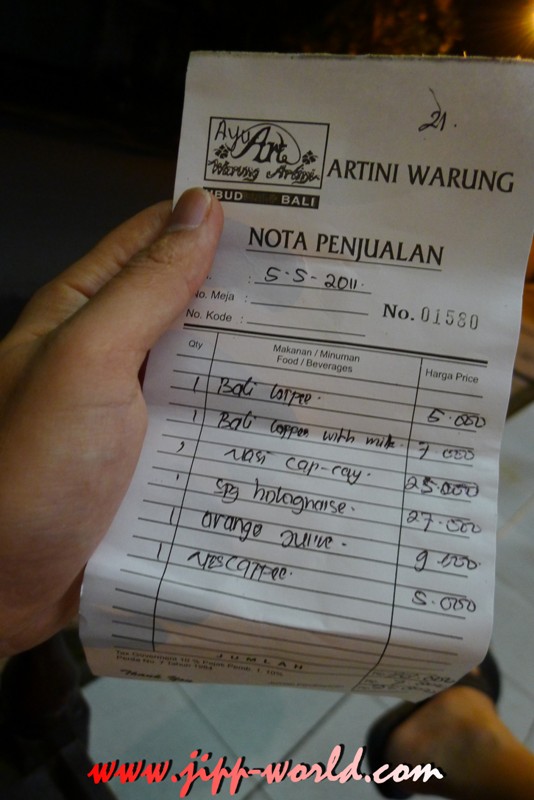 21.
Ayu Art
Warung Artini
UBUD BALI
ARTINI WARUNG
NOTA PENJUALAN
: 5-5-2011.
No. Meja :
No. 01580
No. Kode :
Qty Makanan / Minuman Harga Price
Food / Beverages
1 Bali coffee. 5.000
1 Bali coffee with milk. 7.000
1 Nasi cap-cay. 25.000
1 Spg bolognaise. 27.000
1 orange juice. 9.000
1 Nescaffee. 5.000
JUMLAH
Tax Goverment 10 %
Thank You
www.jipp-world.com